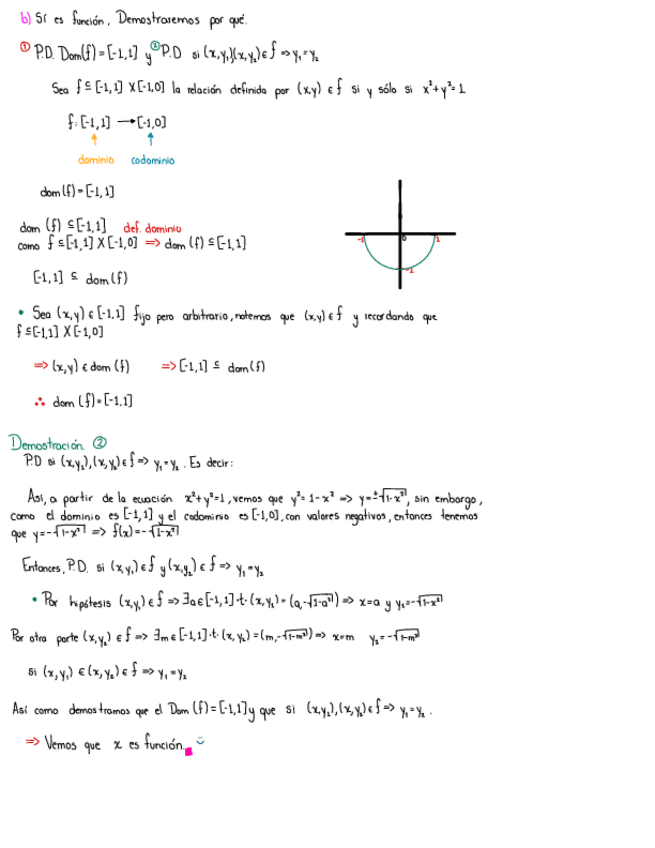 b) Sí es función. Demostraremos por qué.
① P.D. Dom(f)=[-1,1] y ② P.D si (x,y₁)(x,y₂)∈f ⇒ y₁=y₂
Sea f⊆[-1,1]X[-1,0] la relación definida por (x,y)∈f si y sólo si x²+y²=1
f:[-1,1]→[-1,0]
dominio codominio
dom(f)=[-1,1]
dom (f)⊆[-1,1] def. dominio
como f⊆[-1,1]X[-1,0] ⇒ dom(f)⊆[-1,1]
-1 0 1
-1
[-1,1] ⊆ dom(f)
• Sea (x,y)∈[-1,1] fijo pero arbitrario, notemos que (x,y)∈f y recordando que
f⊆[-1,1]X[-1,0]
⇒ (x,y)∈dom(f) ⇒ [-1,1] ⊆ dom(f)
∴ dom (f)=[-1,1]
Demostración ②
P.D si (x,y₂),(x,y₂)∈f ⇒ y₁=y₂. Es decir:
Así, a partir de la ecuación x²+y²=1, vemos que y²=1-x² ⇒ y=±√1-x², sin embargo,
como el dominio es [-1,1] y el codominio es [-1,0], con valores negativos, entonces tenemos
que y=-√1-x² ⇒ f(x)=-√1-x²
Entonces, P.D. si (x,y₁)∈f y (x,y₂)∈f ⇒ y₁=y₂
• Por hipótesis (x,y₁)∈f ⇒ ∃a∈[-1,1]·t·(x,y₁)=(a,-√1-a²) ⇒ x=a y y₁=-√1-x²
Por otra parte (x,y₂)∈f ⇒ ∃m∈[-1,1]·t·(x,y₂)=(m,-√1-m²) ⇒ x=m y₂=-√1-m²
si (x,y₁)∈(x,y₂)∈f ⇒ y₁=y₂
Así como demostramos que el Dom(f)=[-1,1] y que si (x,y₂),(x,y₂)∈f ⇒ y₁=y₂.
⇒ Vemos que x es función.